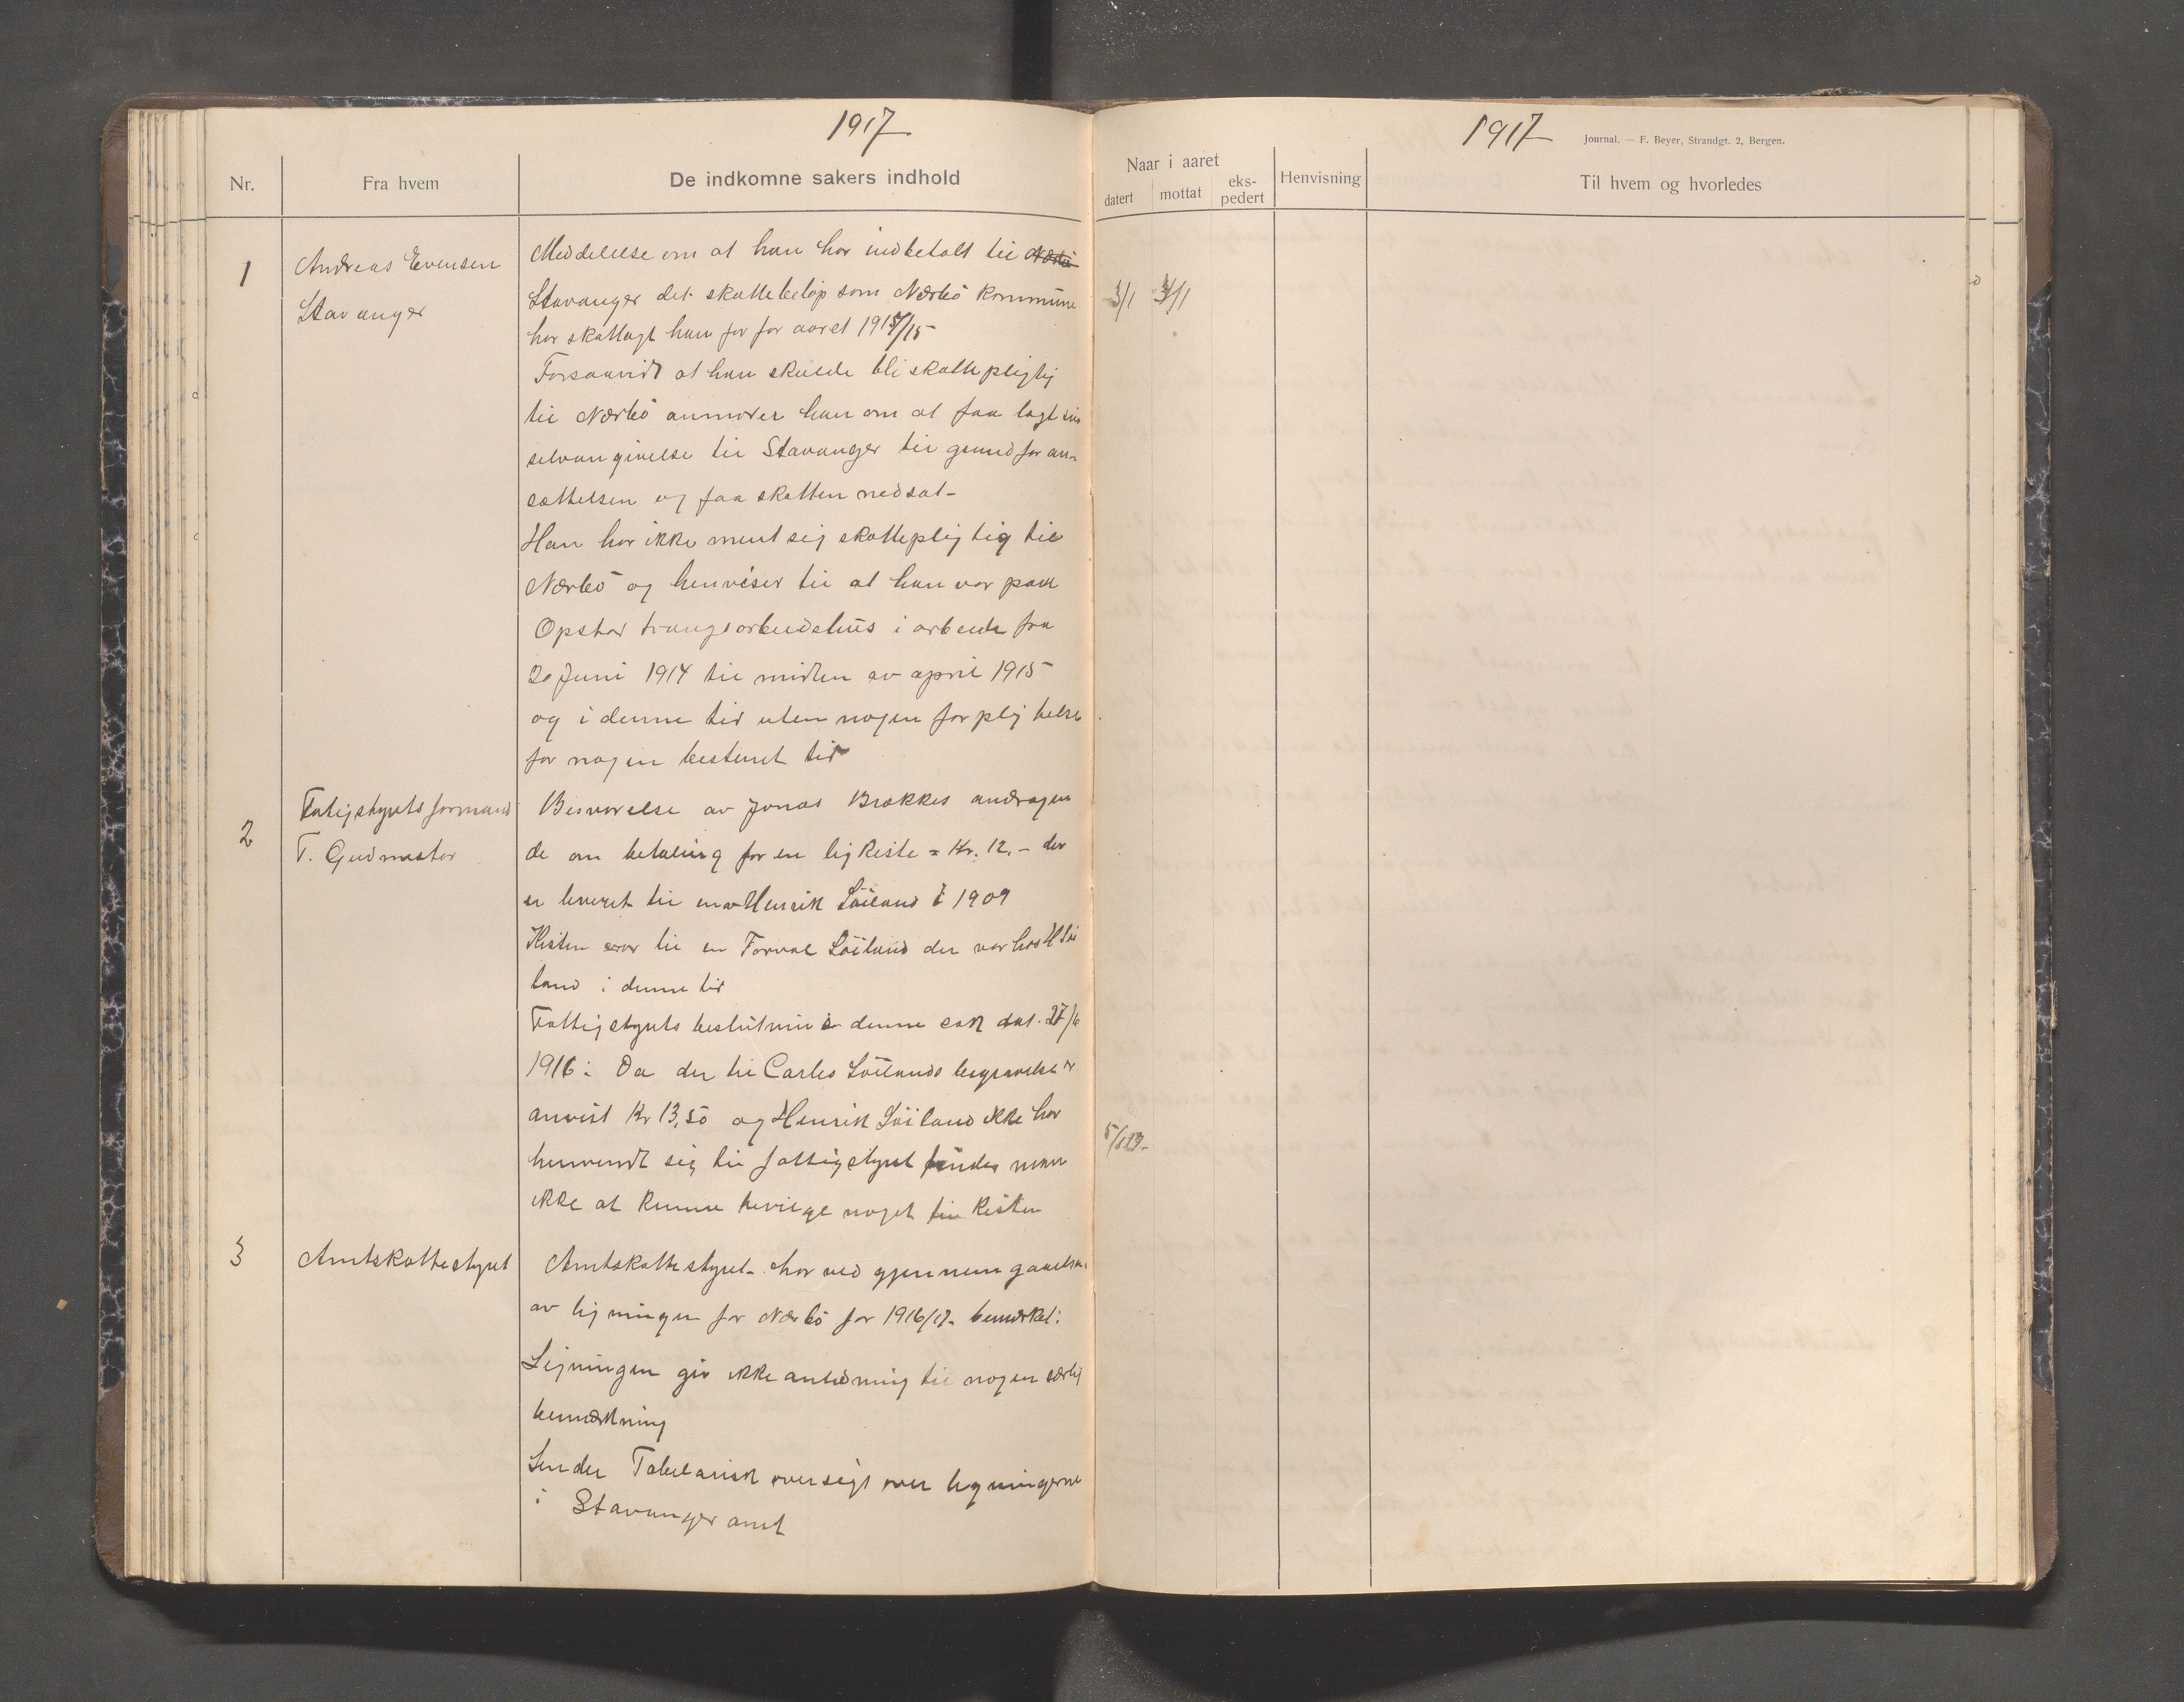 1917
Nr.
Fra hvem
De indkomne sakers indhold
1
Andreas Evensen
Stavanger
Meddelelse om at han har indbetalt til
Stavanger det skattebeløp som Nærbö kommune
har skattlagt han for for aaret 1914/15
Forsaavidt at han skulde bli skattepligtig
til Nærbö anmoder han om at faa lagt sin
selvangivelse til Stavanger til grund for an-
sættelsen og faa skatten nedsat-
Han har ikke ment sig skattepligtig til
Nærbö og henviser til at han var paa
Opstad tvangsarbeidshus i arbeide fra
20 Juni 1914 til midten av april 1915
og i denne tid uten nogen forpligtelse
for nogen bestemt tid
2
Fatigstyrets formand
T. Gudmestad
Besvarelse av Jonas Brækkes andragen
de om betaling for en ligkiste = Kr. 12,- der
er leveret til Henrik Löiland i 1909
Kisten var til en Torval Löiland der var hos H Löi
land i denne tid
Fattigstyrets beslutning i denne sak dat. 27/6
1916: Da der til Carles Löilands begravelse er
anvist Kr 13,50 og Henrik Löiland ikke har
henvendt sig til fattigstyret findes man
ikke at kunne bevilge noget til kisten
3
Amtskattestyret
Amtskattestyret har ved gjennemgaaelsen
av ligningen for Nærbö for 1916/17 bemerket:
Ligningen gir ikke anledning til nogen særlig
bemærkning
Sender Tabelarisk oversigt over ligningerne
i Stavanger amt
1917
Journal. — F. Beyer, Strandgt. 2, Bergen.
Naar i aaret
datert
mottat
eks-
pedert
Henvisning
Til hvem og hvorledes
3/1 4/1